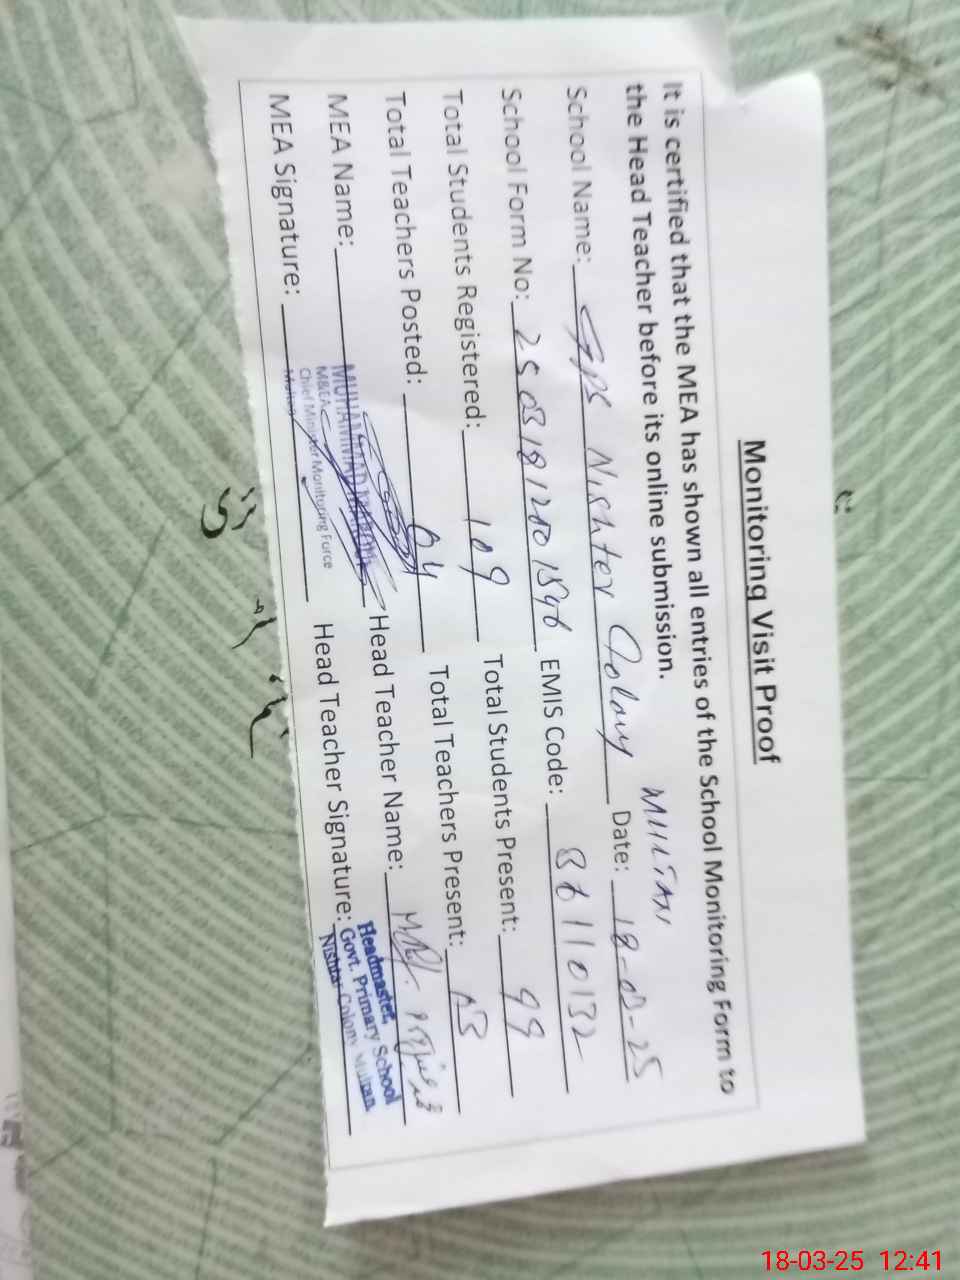 Monitoring Visit Proof
It is certified that the MEA has shown all entries of the School Monitoring Form to
the Head Teacher before its online submission.
MULTAN
School Name: GPS Nishter Colony Date: 18-03-25
School Form No: EMIS Code: 36110132
Total Students Registered: 109 Total Students Present: 99
Total Teachers Posted: 04 Total Teachers Present: 03
MEA Name: MUHAMMAD Head Teacher Name:
M&EA
Chief Minister Monitoring Force
Multan
MEA Signature: Head Teacher Signature:
Headmaster,
Govt. Primary School
Nishtar Colony Multan.
18-03-25 12:41